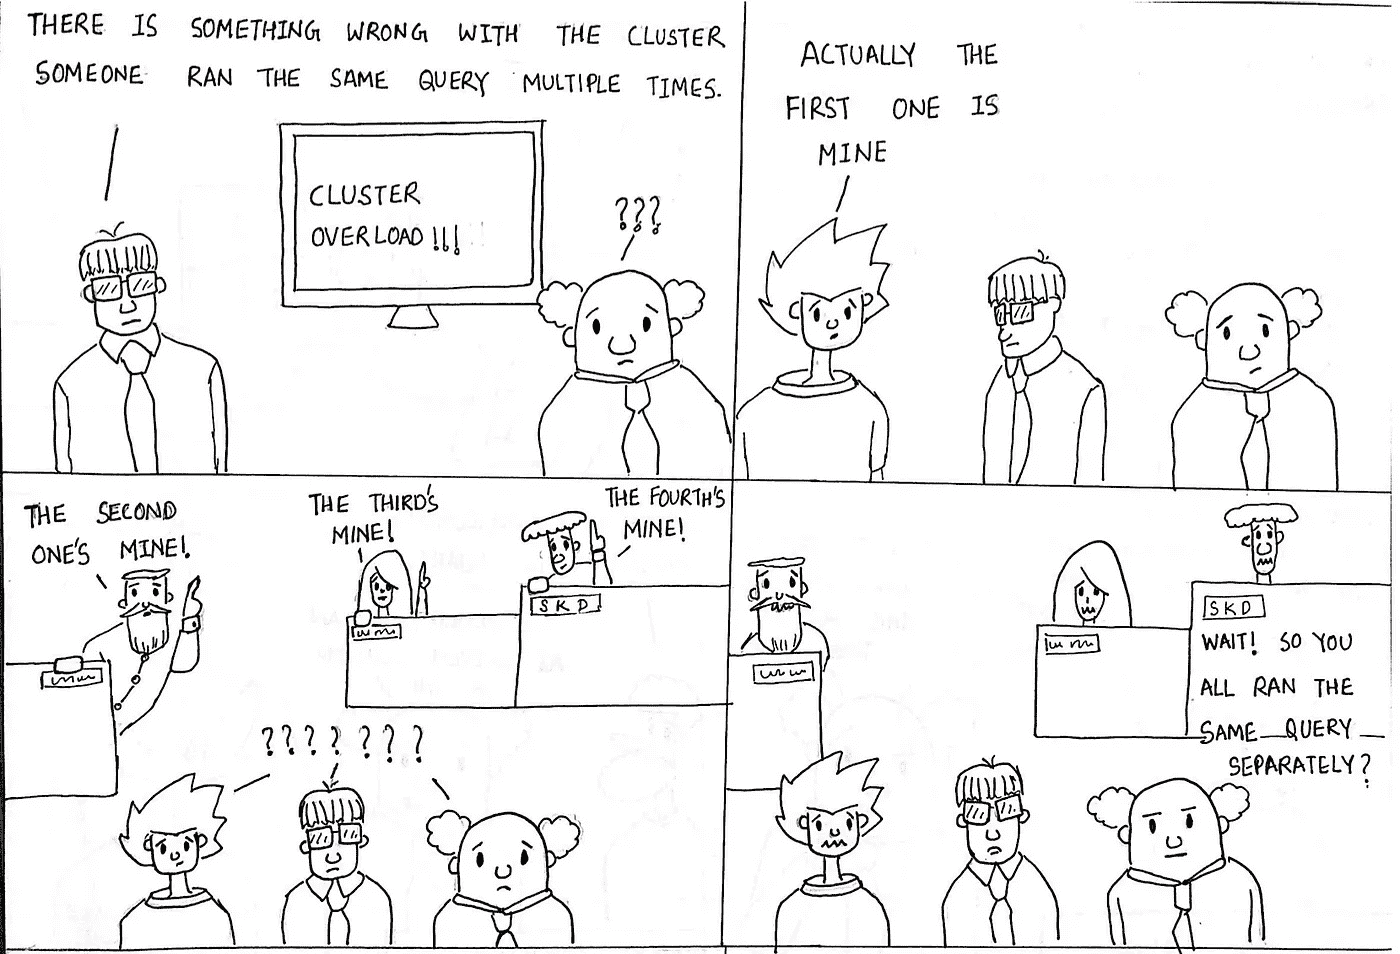 THERE IS SOMETHING WRONG WITH THE CLUSTER
SOMEONE RAN THE SAME QUERY MULTIPLE TIMES.
CLUSTER
OVERLOAD!!!
???
ACTUALLY THE
FIRST ONE IS
MINE
THE SECOND
ONE'S MINE!
THE THIRD'S
MINE!
THE FOURTH'S
MINE!
SKD
???????
SKD
WAIT! SO YOU
ALL RAN THE
SAME QUERY
SEPARATELY?